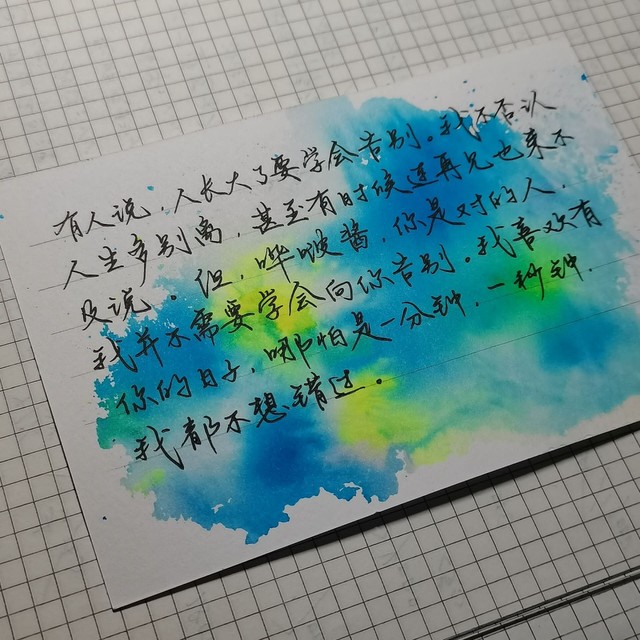 有人说，人长大了要学会告别。我不否认
人生多别离，甚至有时候连再见也来不
及说。但，哗啵酱，你是对的人，
我并不需要学会向你告别。我喜欢有
你的日子，哪怕是一分钟，一秒钟，
我都不想错过。